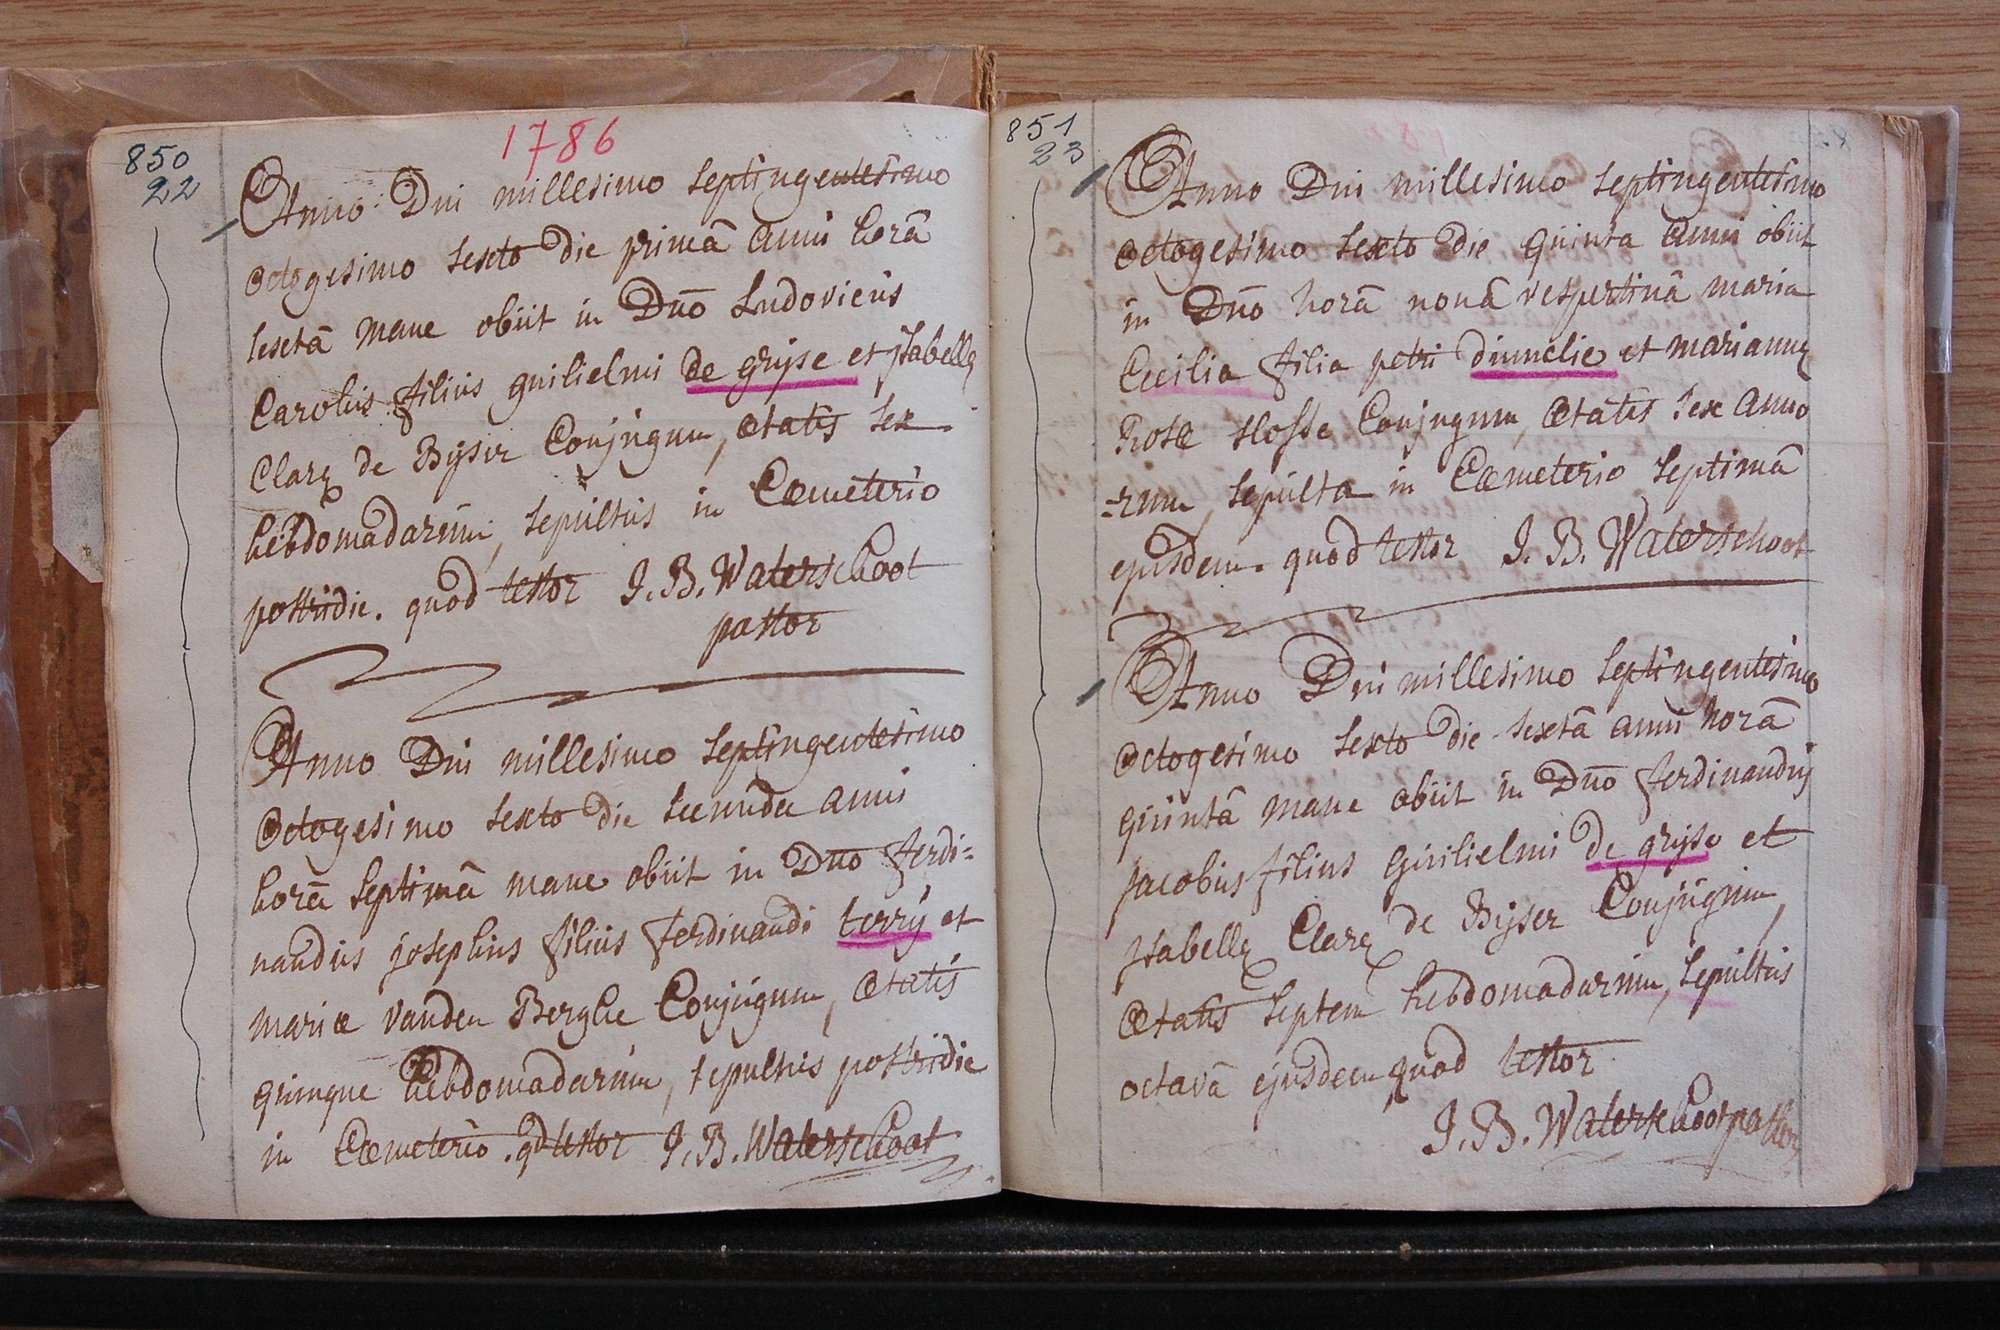 850
22
1786
Anno Dni millesimo septingentesimo
octogesimo sexto die primâ anni horâ
sextâ mane obiit in Dno Ludovicus
Carolus filius guilielmi de gryse et ysabellę
Clarę de Bÿser Conjugum, ætatis sex
hebdomadarum, sepultus in Cœmeterio
postridie. quod testor J. B. Waterschoot
pastor
Anno Dni millesimo septingentesimo
octogesimo sexto die secunda anni
horâ septimâ mane obiit in Dno ferdi=
nandus josephus filius ferdinandi terrÿ et
mariæ vanden Berghe Conjugum, ætatis
quinque hebdomadarum, sepultus postridie
in Cœmeterio. qd testor J. B. Waterschoot
851
23
Anno Dni millesimo septingentesimo
octogesimo sexto die quinta anni obiit
in Dno horâ nonâ vespertinâ maria
Cecilia filia petri dumelie et mariannę
Rosæ slosse Conjugum, ætatis sex anno
=rum, sepulta in Cœmeterio septimâ
ejusdem. quod testor J. B. Waterschoot
Anno Dni millesimo septingentesimo
octogesimo sexto die sextâ anni horâ
quintâ mane obiit in Dno ferdinandus
jacobus filius Guilielmi de gryse et
ysabellę Clarę de Bÿser Conjugum,
ætatis septem hebdomadarum, sepultus
octavâ ejusdem quod testor
J. B. Waterschoot pastor